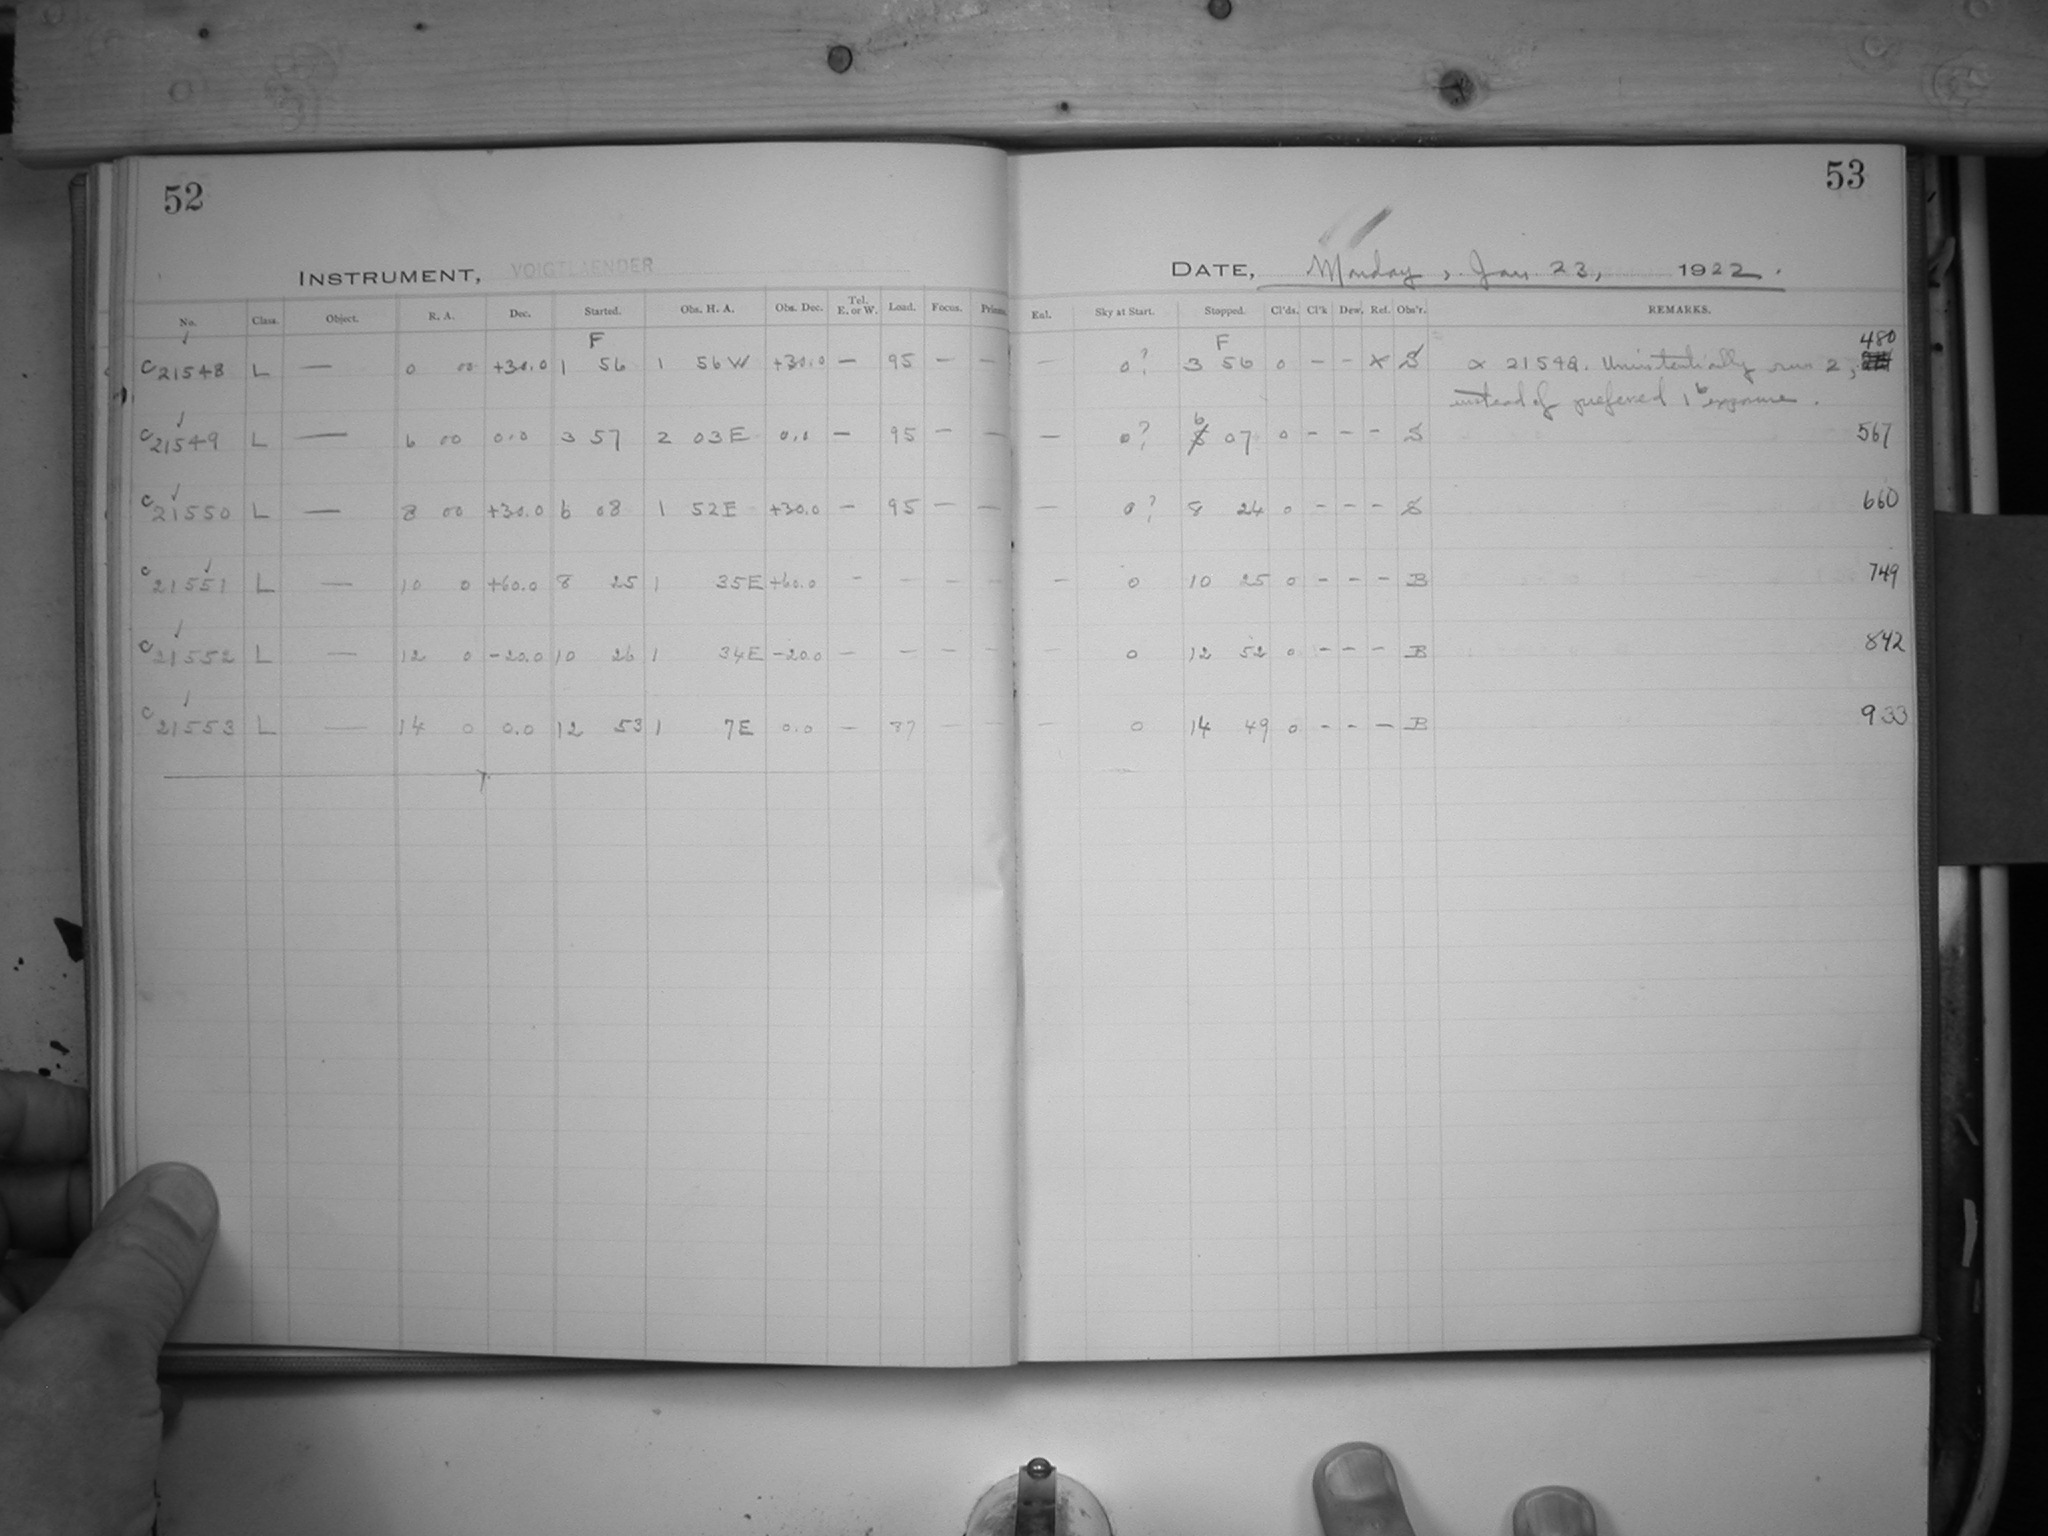 52
53
INSTRUMENT, VOIGTLAENDER
DATE, Monday, Jan. 23, 1922.
No. Class. Object. R. A. Dec. Started. Obs. H. A. Obs. Dec. Tel. E. or W. Load. Focus. Prisms. Eul. Sky at Start. Stopped. Cl'ds. Cl'k Dew. Ref. Obs'r. REMARKS.
F F 480
C21548 L — 0 00 +30.0 1 56 1 56W +30.0 — 95 — — — 0? 3 56 0 - - x S x 21548. Unintentionally run 2,
instead of preferred 1 exposure.
C21549 L — 6 00 0.0 3 57 2 03E 0.0 — 95 — — — 0? 6 07 0 - - - S 567
C21550 L — 8 00 +30.0 6 08 1 52E +30.0 — 95 — — — 0? 8 24 0 - - - S 660
C21551 L — 10 0 +60.0 8 25 1 35E +60.0 - - - - — 0 10 25 0 - - - B 749
C21552 L — 12 0 -20.0 10 26 1 34E -20.0 — — — — — 0 12 52 0 - - - B 842
C21553 L — 14 0 0.0 12 53 1 7E 0.0 — 87 — — — 0 14 49 0 - - - B 933